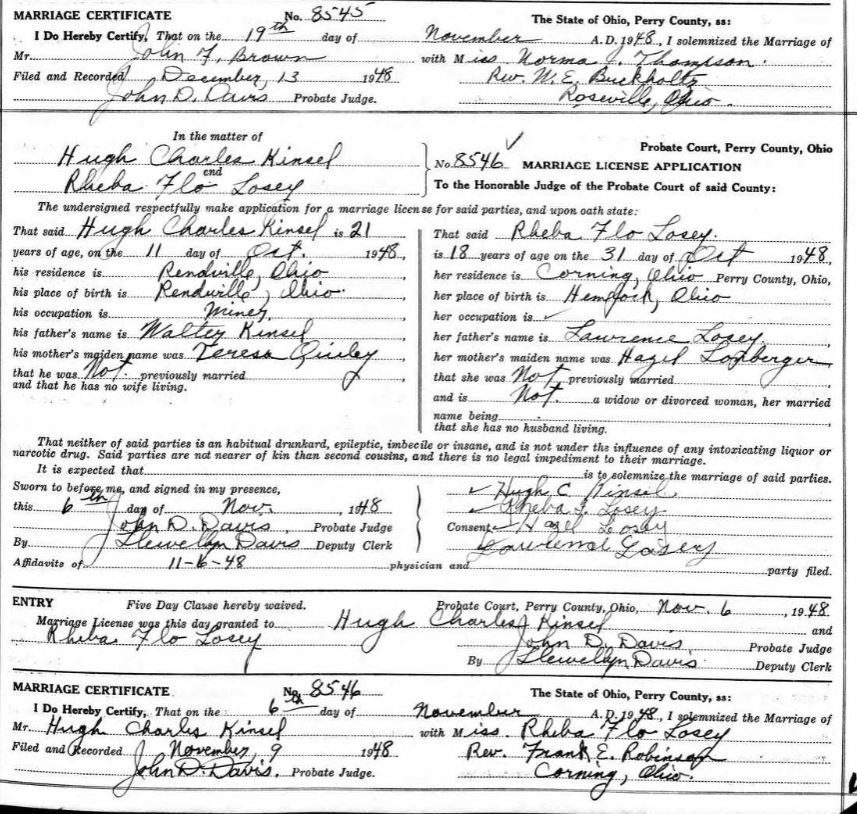 MARRIAGE CERTIFICATE No. 8545 The State of Ohio, Perry County, ss:
I Do Hereby Certify, That on the 19th day of November A. D. 1948, I solemnized the Marriage of
Mr. John F. Brown with Miss Norma J. Thompson.
Filed and Recorded December, 13 1948 Rev. W. E. Buckholtz
John D. Davis Probate Judge. Roseville, Ohio.
In the matter of
Hugh Charles Kinsel
and
Rheba Flo Losey
Probate Court, Perry County, Ohio
No. 8546 MARRIAGE LICENSE APPLICATION
To the Honorable Judge of the Probate Court of said County:
The undersigned respectfully make application for a marriage license for said parties, and upon oath state:
That said Hugh Charles Kinsel is 21
years of age, on the 11 day of Oct. 1948,
his residence is Rendville, Ohio
his place of birth is Rendville, Ohio.
his occupation is Miner
his father's name is Walter Kinsel
his mother's maiden name was Teresa
that he was Not previously married
and that he has no wife living.
That said Rheba Flo Losey.
is 18 years of age on the 31 day of Oct 1948,
her residence is Corning, Ohio Perry County, Ohio,
her place of birth is Hemlock, Ohio
her occupation is
her father's name is Lawrence Losey
her mother's maiden name was Hazel
that she was Not previously married
and is Not. a widow or divorced woman, her married
name being
that she has no husband living.
That neither of said parties is an habitual drunkard, epileptic, imbecile or insane, and is not under the influence of any intoxicating liquor or
narcotic drug. Said parties are not nearer of kin than second cousins, and there is no legal impediment to their marriage.
It is expected that is to solemnize the marriage of said parties.
Sworn to before me, and signed in my presence,
this 6th day of Nov. 1948
John D. Davis Probate Judge
By Llewellyn Davis Deputy Clerk
Hugh C Kinsel
Rheba F. Losey
Consent Hazel Losey
Lawrence Losey
Affidavits of 11-6-48 physician and party filed.
ENTRY Five Day Clause hereby waived. Probate Court, Perry County, Ohio, Nov. 6, 1948
Marriage License was this day granted to Hugh Charles Kinsel and
Rheba Flo Losey John D. Davis. Probate Judge
By Llewellyn Davis. Deputy Clerk
MARRIAGE CERTIFICATE No. 8546 The State of Ohio, Perry County, ss:
I Do Hereby Certify, That on the 6th day of November A. D. 1948, I solemnized the Marriage of
Mr. Hugh Charles Kinsel with Miss. Rheba Flo Losey
Filed and Recorded November, 9 1948 Rev. Frank E. Robinson
John D. Davis. Probate Judge. Corning, Ohio.